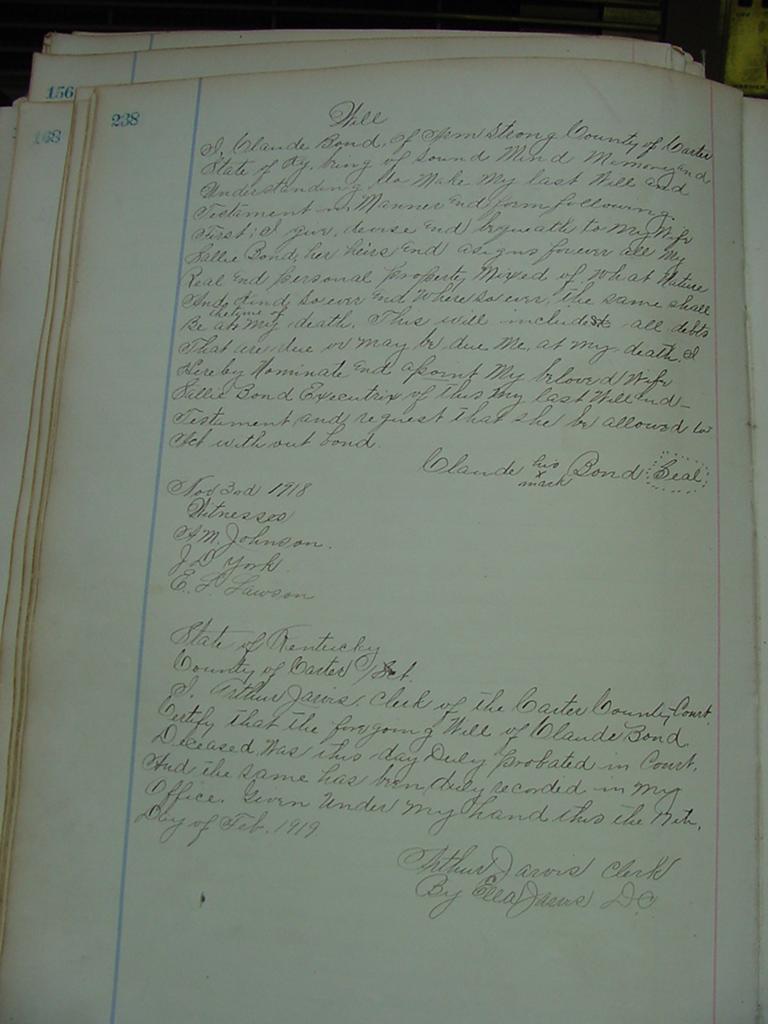 156
168
238
Will
I, Claude Bond, of Armstrong County of Carter
State of Ky, being of Sound Mind Memory and
Understanding do Make My last Will and
Testament in Manner End form following.
First; I give, devise End bequeath to My Wife
Sallie Bond, her heirs End asigns forever all My
Real End personal property, Mixed of What Nature
And Kind So ever End Where So ever, the same shall
the time of
Be at My death. This will include all debts
That are due or may be due Me, at my death. I
Hereby Nominate End apoint My beloved Wife
Sallie Bond Executrix of this My last Will and
Testament and request that she be allowed to
Act with out bond.
Claude his x mark Bond Seal
Nov 3rd 1918
Witnesses
A.M. Johnson.
J D York
E. L Lawson
State of Kentucky
County of Carter Sct.
I. Arthur Jarvis, Clerk of the Carter County Court.
Certify that the foregoing Will of Claude Bond
Deceased, Was this day Duly probated in Court.
And the same has been duly recorded in My
Office. Given Under My hand this the 17th,
Day of Feb. 1919
Arthur Jarvis Clerk
By Ella Jarvis D.C.